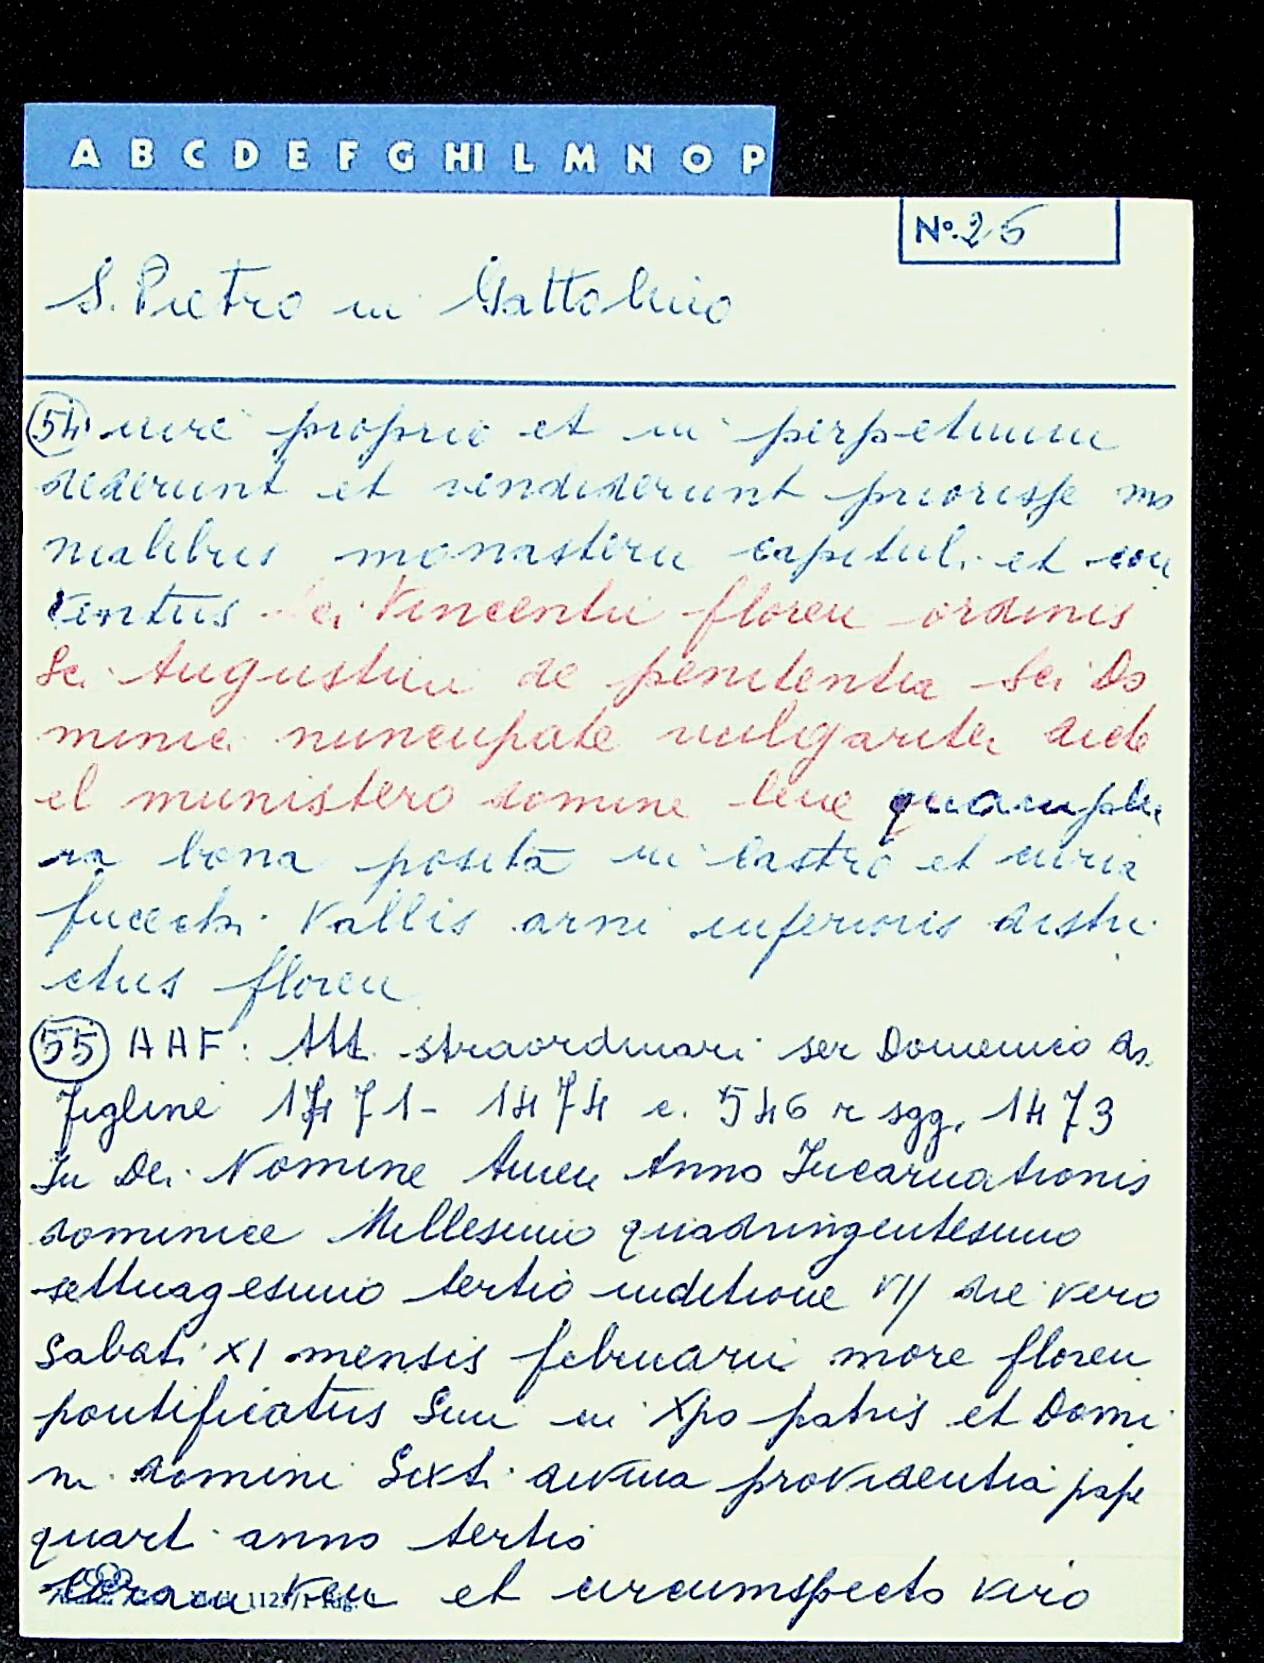 A B C D E F G HI L M N O P
No. 26
S. Pietro in Gattolino
54 iure proprio et in perpetuum
dederunt et vendiderunt prioresse mo
nialibus monasterii capitul. et con
ventus Sci Vincentii floren ordinis
Sci Augustini de penitentia Sci Do
minici nuncupate vulgariter dicte
el munistero domine lene quamplu
ra bona posita in castro et curia
fucechi Vallis arni inferioris distri
ctus floren
55 AAF: Att. straordinari ser Domenico da
Figline 1471-1474 c. 546 r sgg. 1473
In Dei Nomine Amen Anno Incarnationis
dominice Millesimo quadringentesimo
settuagesimo tertio inditione VII die vero
Sabati XI mensis februarii more floren
pontificatus Smi in Xpo patris et Domi
ni domini Sixti divina providentia pape
quarti anno tertio
Coram Ven et circumspecto viro